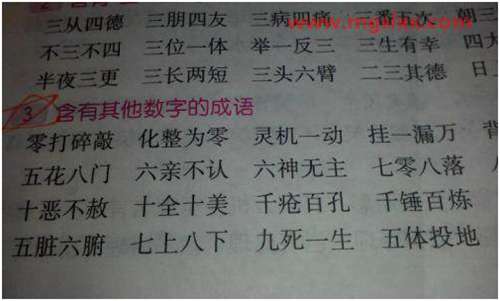 三从四德 三朋四友 三病四痛 三番五次 朝三
不三不四 三位一体 举一反三 三生有幸 四大
半夜三更 三长两短 三头六臂 二三其德 日
3 含有其他数字的成语
零打碎敲 化整为零 灵机一动 挂一漏万
五花八门 六亲不认 六神无主 七零八落
十恶不赦 十全十美 千疮百孔 千锤百炼
五脏六腑 七上八下 九死一生 五体投地